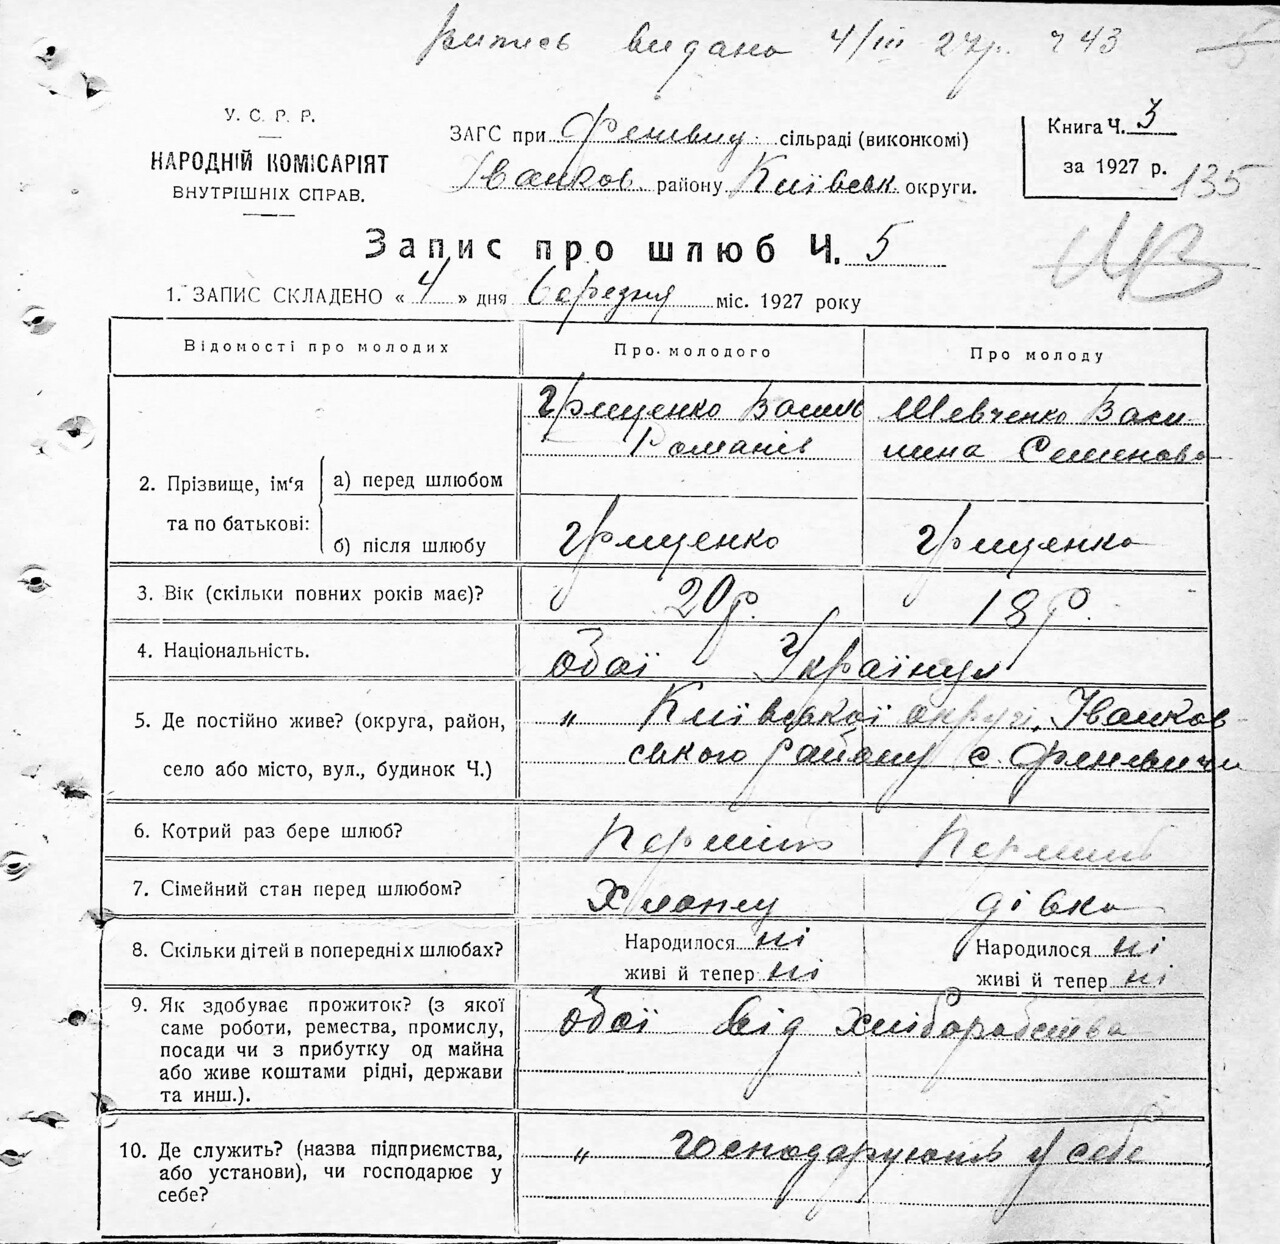 випись видана 4/III 27р. ч 43
У. С. Р. Р.
НАРОДНІЙ КОМІСАРІЯТ
ВНУТРІШНІХ СПРАВ.
ЗАГС при Феневиц. сільраді (виконкомі)
Іванков. району Київськ. округи.
Книга Ч. 3
за 1927 р.
135
Запис про шлюб Ч. 5
1. ЗАПИС СКЛАДЕНО « 4 » дня березня міс. 1927 року
Відомості про молодих
Про молодого
Про молоду
2. Прізвище, ім'я та по батькові:
а) перед шлюбом
Грищенко Василь
Романів
Шевченко Васи-
лина Семенова
б) після шлюбу
Грищенко
Грищенко
3. Вік (скільки повних років має)?
20 р.
18 р.
4. Національність.
обої Українці
5. Де постійно живе? (округа, район,
село або місто, вул., будинок Ч.)
„ Київської округи, Іванков-
ського району с. Феневичи
6. Котрий раз бере шлюб?
Перший
Перший
7. Сімейний стан перед шлюбом?
Хлопец
дівка
8. Скільки дітей в попередніх шлюбах?
Народилося ні
живі й тепер ні
Народилося ні
живі й тепер ні
9. Як здобуває прожиток? (з якої
саме роботи, ремества, промислу,
посади чи з прибутку од майна
або живе коштами рідні, держави
та инш.).
обої від хліборобства
10. Де служить? (назва підприємства,
або установи), чи господарює у
себе?
„ господарують у себе